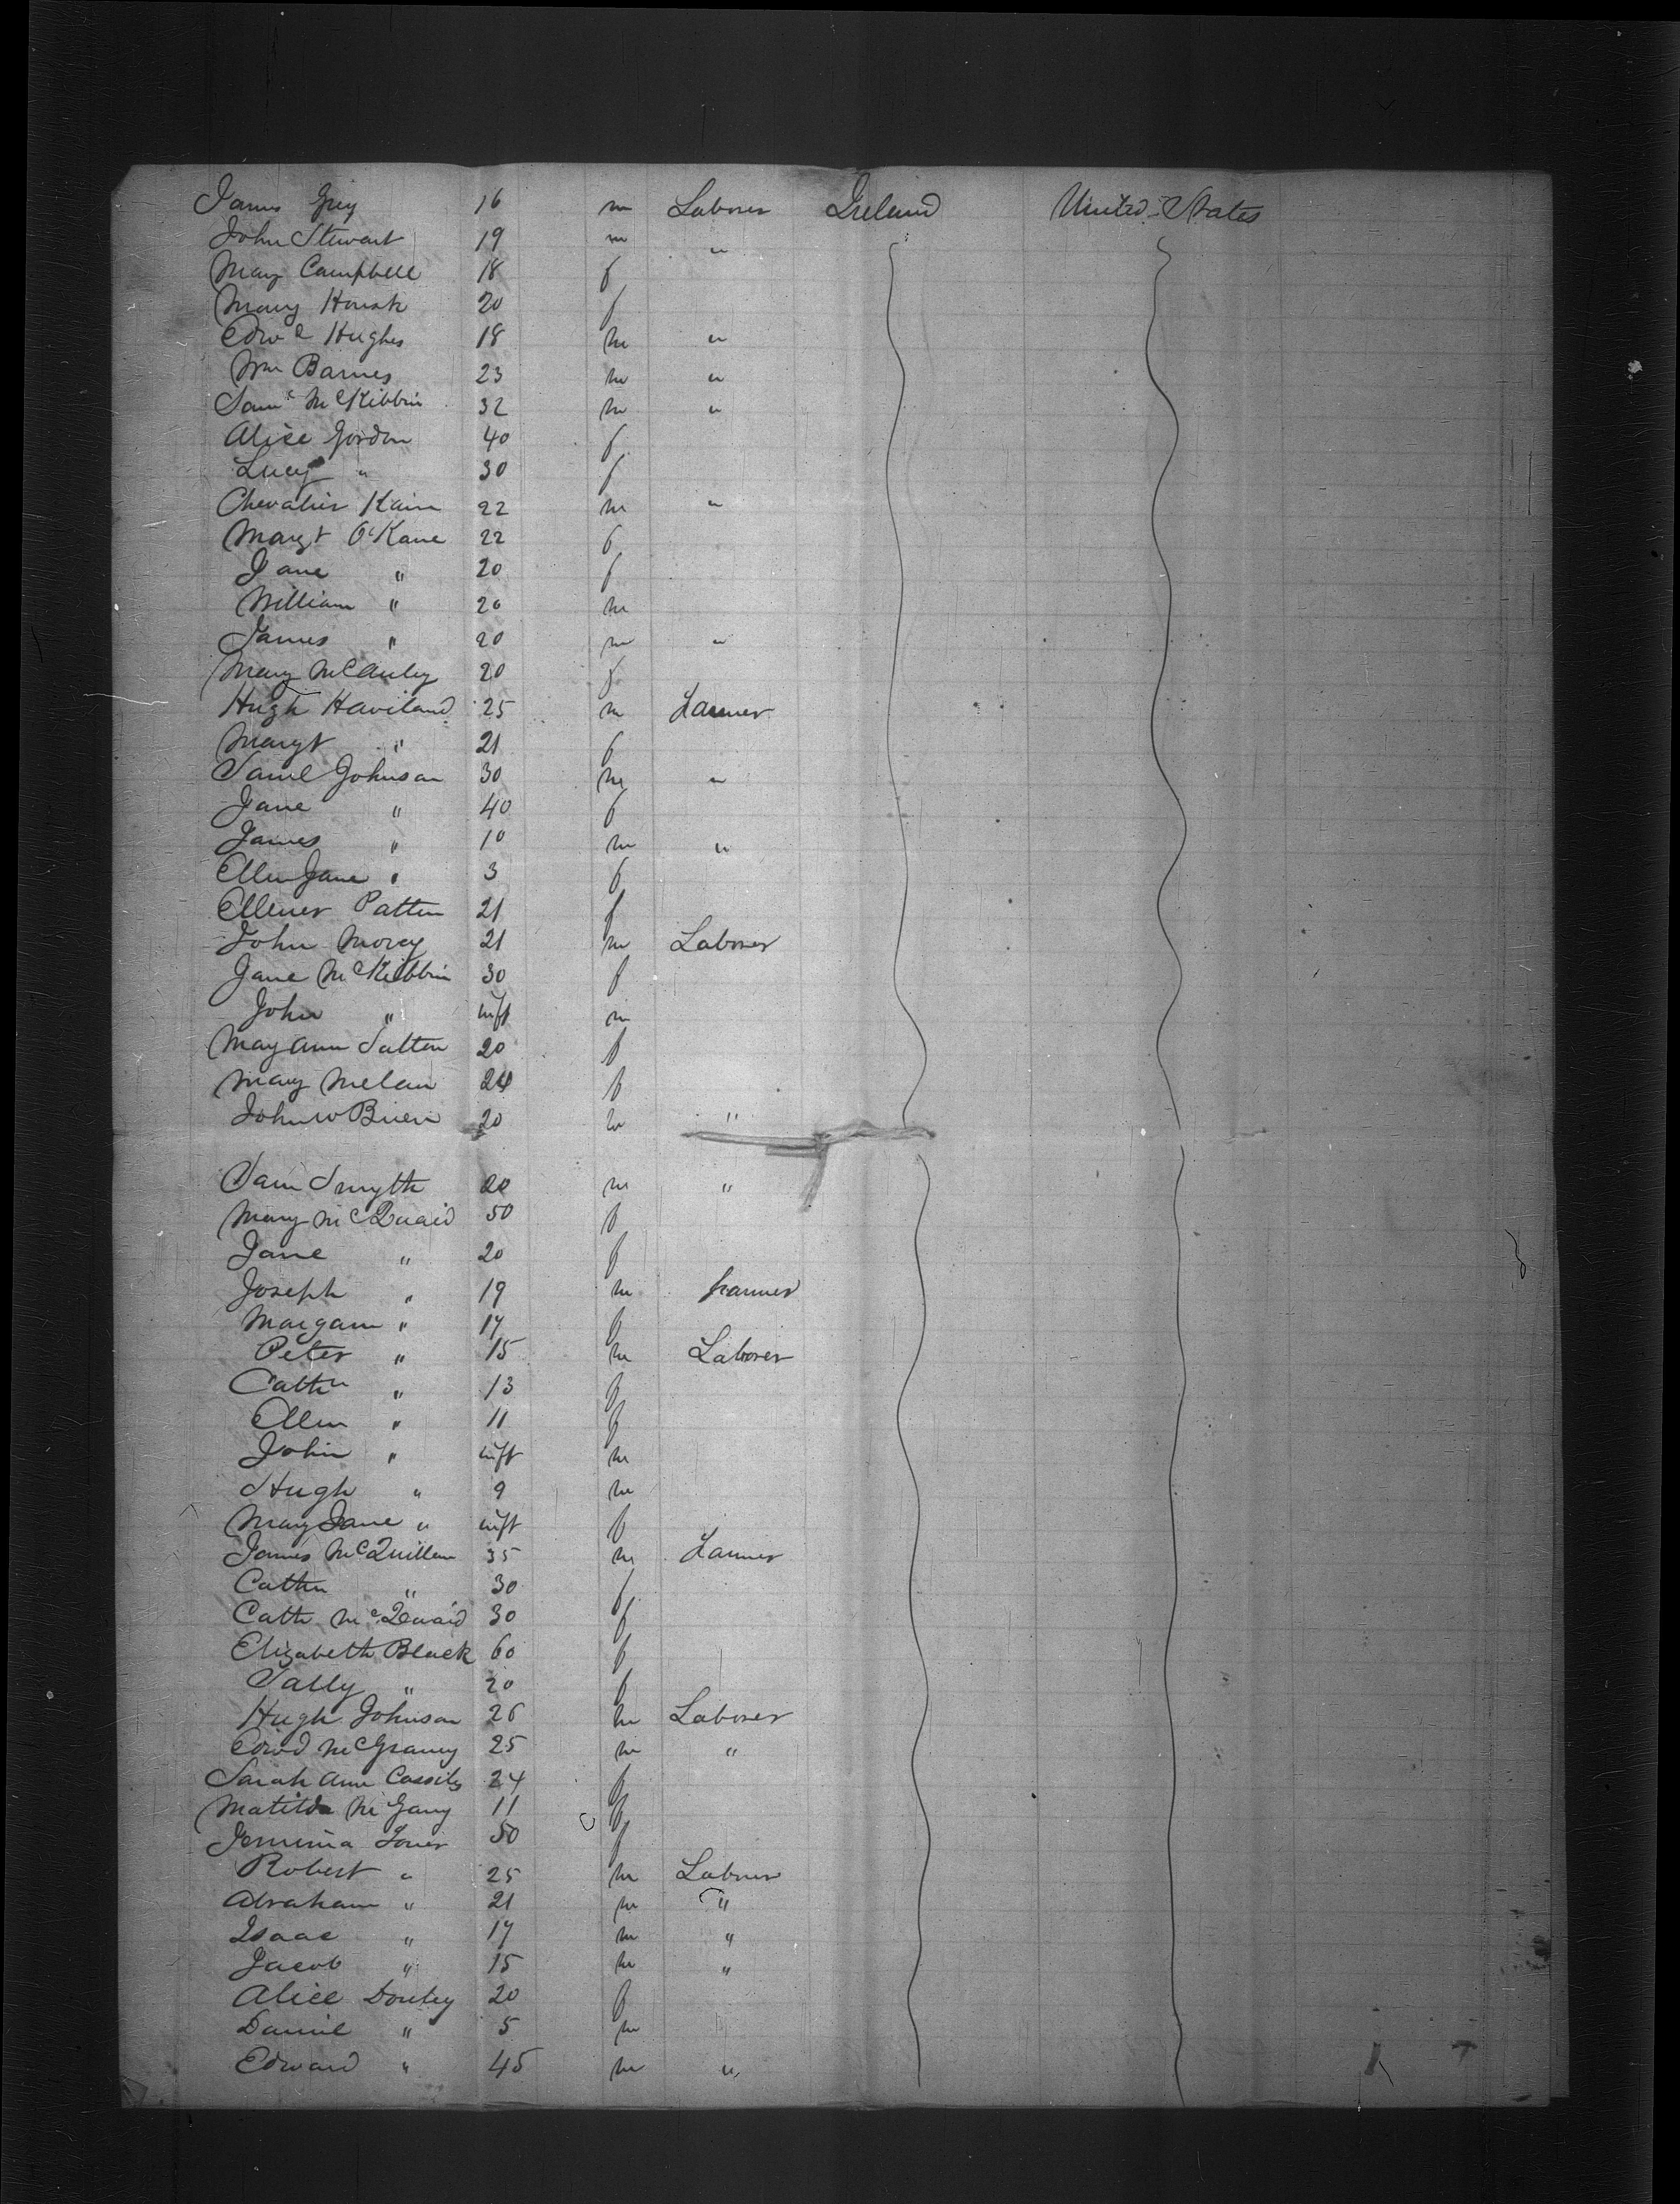 James Grey 16 m Laborer Ireland United States
John Stewart 19 m "
Mary Campbell 18 f
Mary 20 f
Edwd Hughes 18 m "
Wm Barnes 23 m "
Saml McKibbin 32 m "
Alice Gordon 40 f
Lucy " 30 f
Chevalier Kain 22 m "
Margt O'Kane 22 f
Jane " 20 f
William " 20 m
James " 20 m "
Mary McAuley 20 f
Hugh Haviland 25 m Farmer
Margt " 21 f
Saml Johnson 30 m "
Jane " 40 f
James " 10 m "
Ellen Jane " 3 f
Ellener Patten 21 f
John Morey 21 m Laborer
Jane McKibbin 30 f
John " inft m
Mary Ann 20 f
Mary 24 f
John 20 m "
Sam Smyth 20 m "
Mary McQuaid 50 f
Jane " 20 f
Joseph " 19 m Farmer
" 17 f
Peter " 15 m Laborer
Cathn " 13 f
Ellen " 11 f
John " inft m
Hugh " 9 m
Mary Jane " inft f
James McQuillen 35 m Farmer
Cathn " 30 f
Cath McQuaid 30 f
Elizabeth Black 60 f
Sally " 20 f
Hugh Johnson 26 m Laborer
Edwd 25 m "
Sarah Ann Cassily 24 f
Matilda 11 f
Jemima 50 f
Robert " 25 m Laborer
Abraham " 21 m "
Isaac " 17 m "
Jacob " 15 m "
Alice 20 f
Daniel " 5 m
Edward " 45 m "